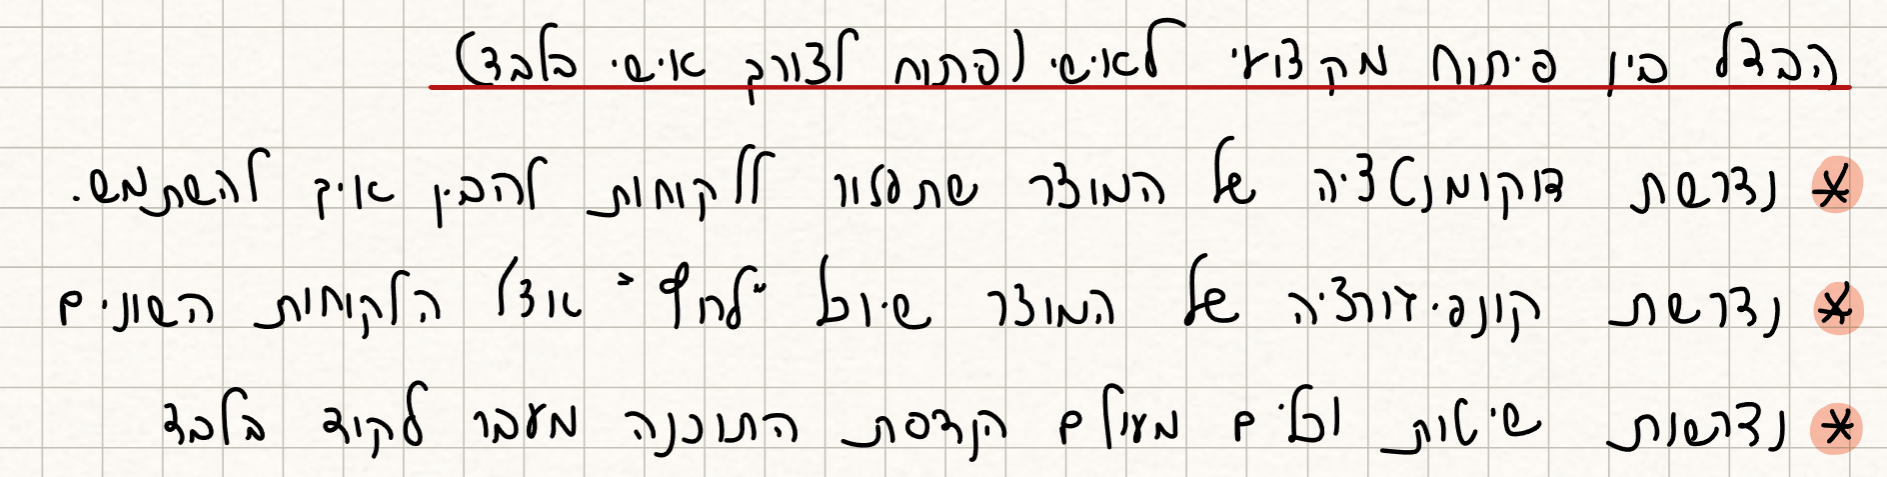 הבדל בין פיתוח מקצועי לאישי (פתוח לצורך אישי בלבד)
* נדרשת דוקומנטציה של המוצר שתעזור ללקוחות להבין איך להשתמש.
* נדרשת קונפיגורציה של המוצר שיוכל "לרוץ" אצל הלקוחות השונים
* נדרשות שיטות וכלים מעולם הנדסת התוכנה מעבר לקוד בלבד